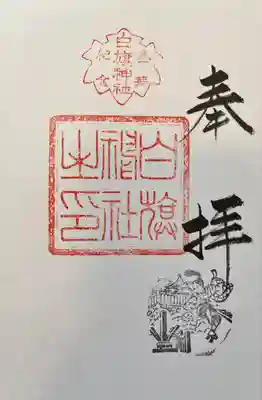 奉拝
参拝
白旗神社
紀念
白旗
神社
之印